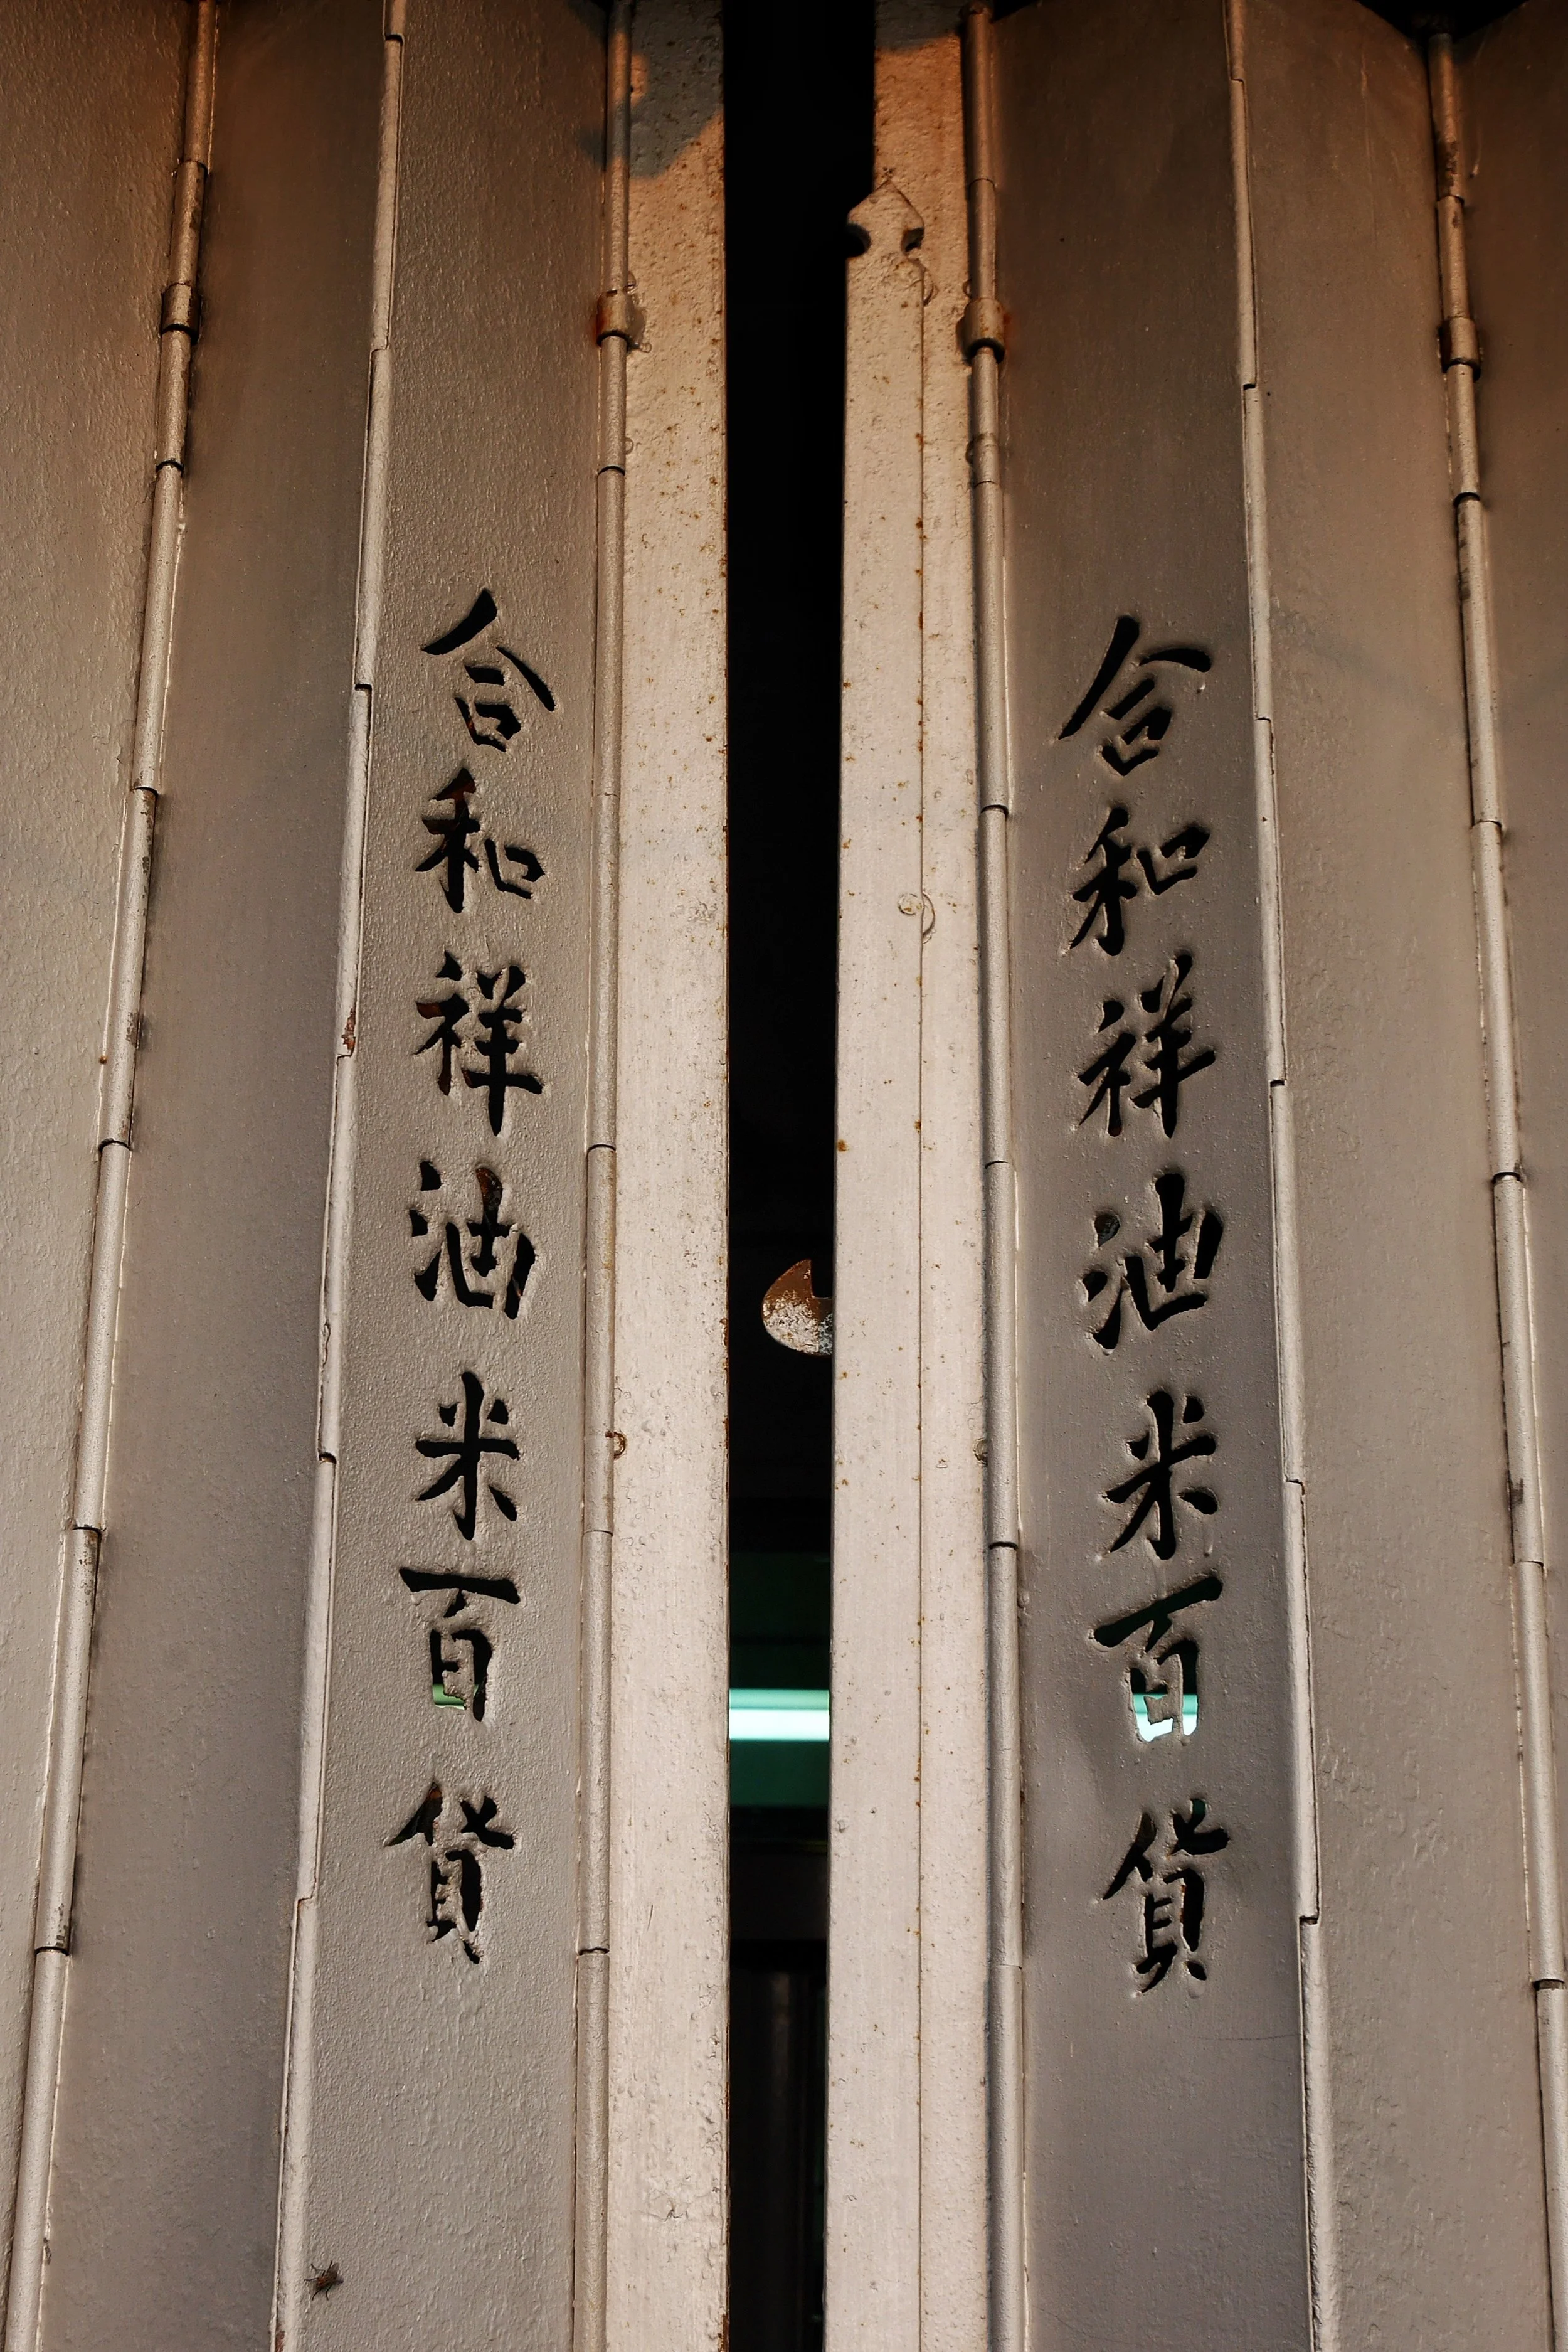 合和祥油米百貨
合和祥油米百貨